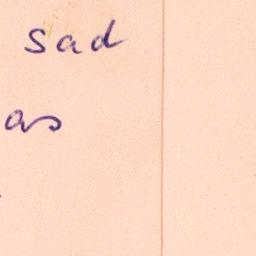 sad
as